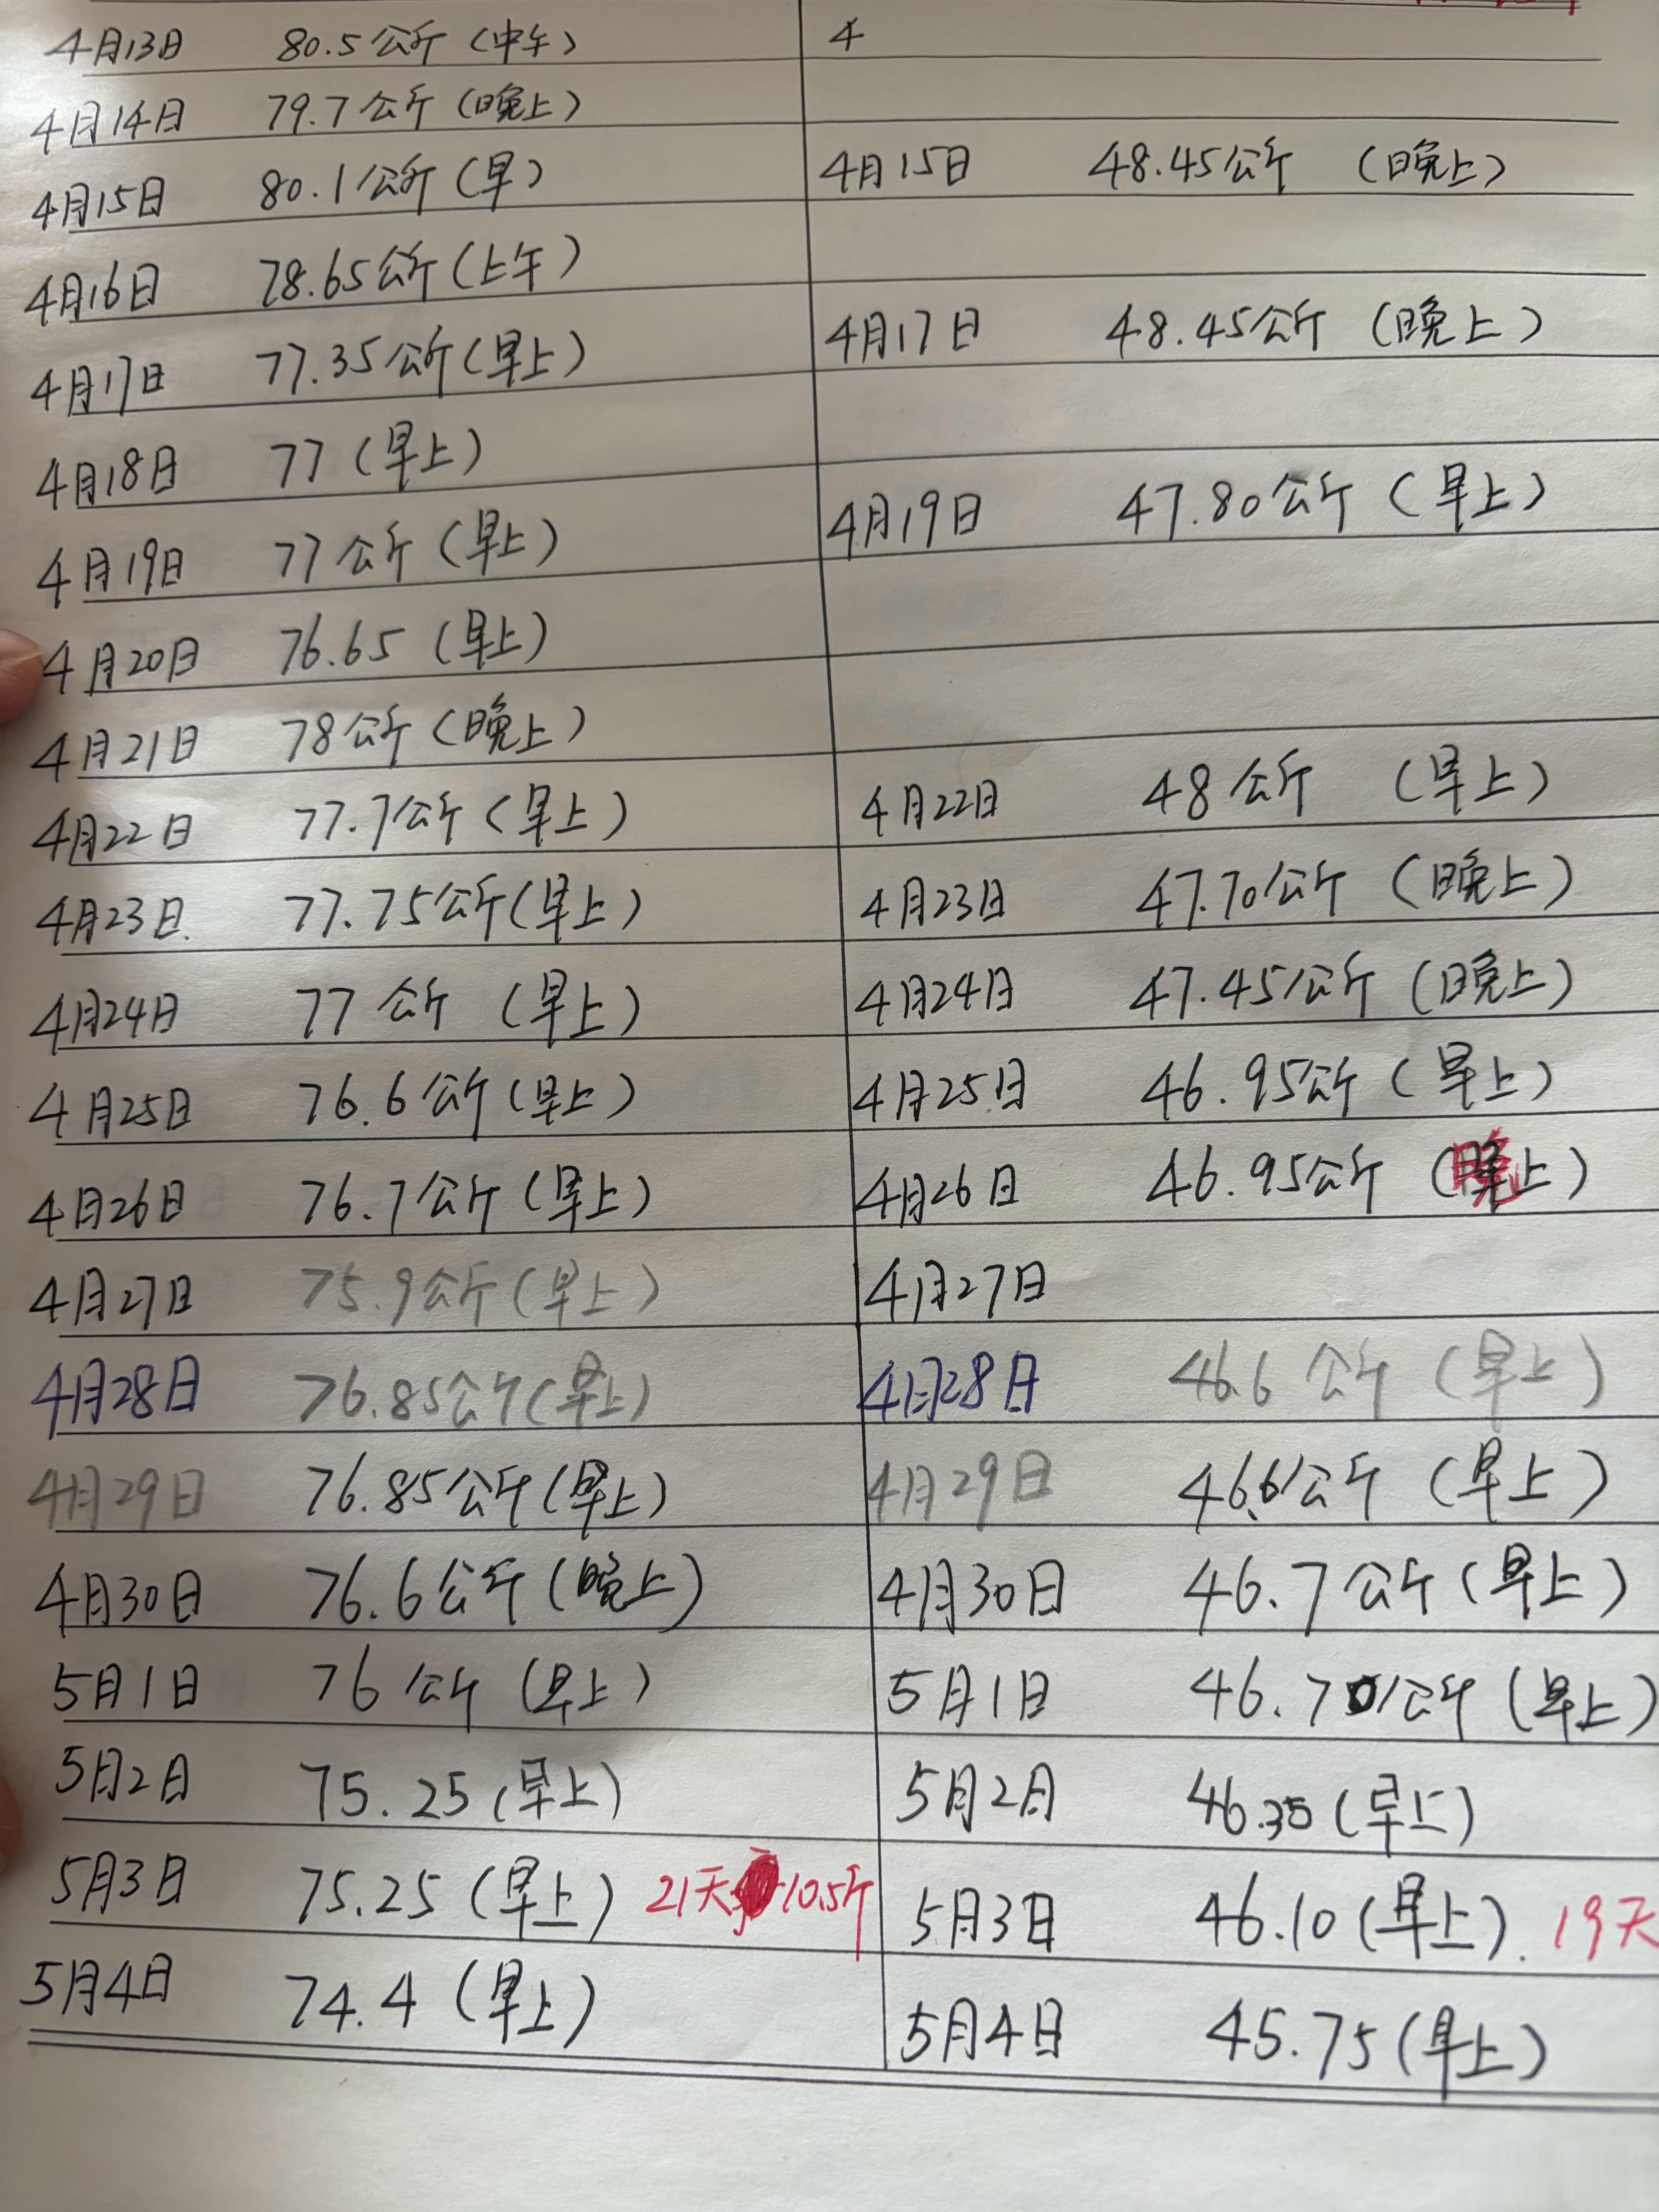 4月13日 80.5公斤（中午） 4
4月14日 79.7公斤（晚上）
4月15日 80.1公斤（早） 4月15日 48.45公斤（晚上）
4月16日 78.65公斤（上午）
4月17日 77.35公斤（早上） 4月17日 48.45公斤（晚上）
4月18日 77（早上）
4月19日 77公斤（早上） 4月19日 47.80公斤（早上）
4月20日 76.65（早上）
4月21日 78公斤（晚上）
4月22日 77.7公斤（早上） 4月22日 48公斤（早上）
4月23日 77.75公斤（早上） 4月23日 47.70公斤（晚上）
4月24日 77公斤（早上） 4月24日 47.45公斤（晚上）
4月25日 76.6公斤（早上） 4月25日 46.95公斤（早上）
4月26日 76.7公斤（早上） 4月26日 46.95公斤（晚上）
4月27日 75.9公斤（早上） 4月27日
4月28日 76.85公斤（早上） 4月28日 46.6公斤（早上）
4月29日 76.85公斤（早上） 4月29日 46.6公斤（早上）
4月30日 76.6公斤（晚上） 4月30日 46.7公斤（早上）
5月1日 76公斤（早上） 5月1日 46.70公斤（早上）
5月2日 75.25（早上） 5月2日 46.35（早上）
5月3日 75.25（早上） 21天 10.5斤 5月3日 46.10（早上）. 19天
5月4日 74.4（早上） 5月4日 45.75（早上）